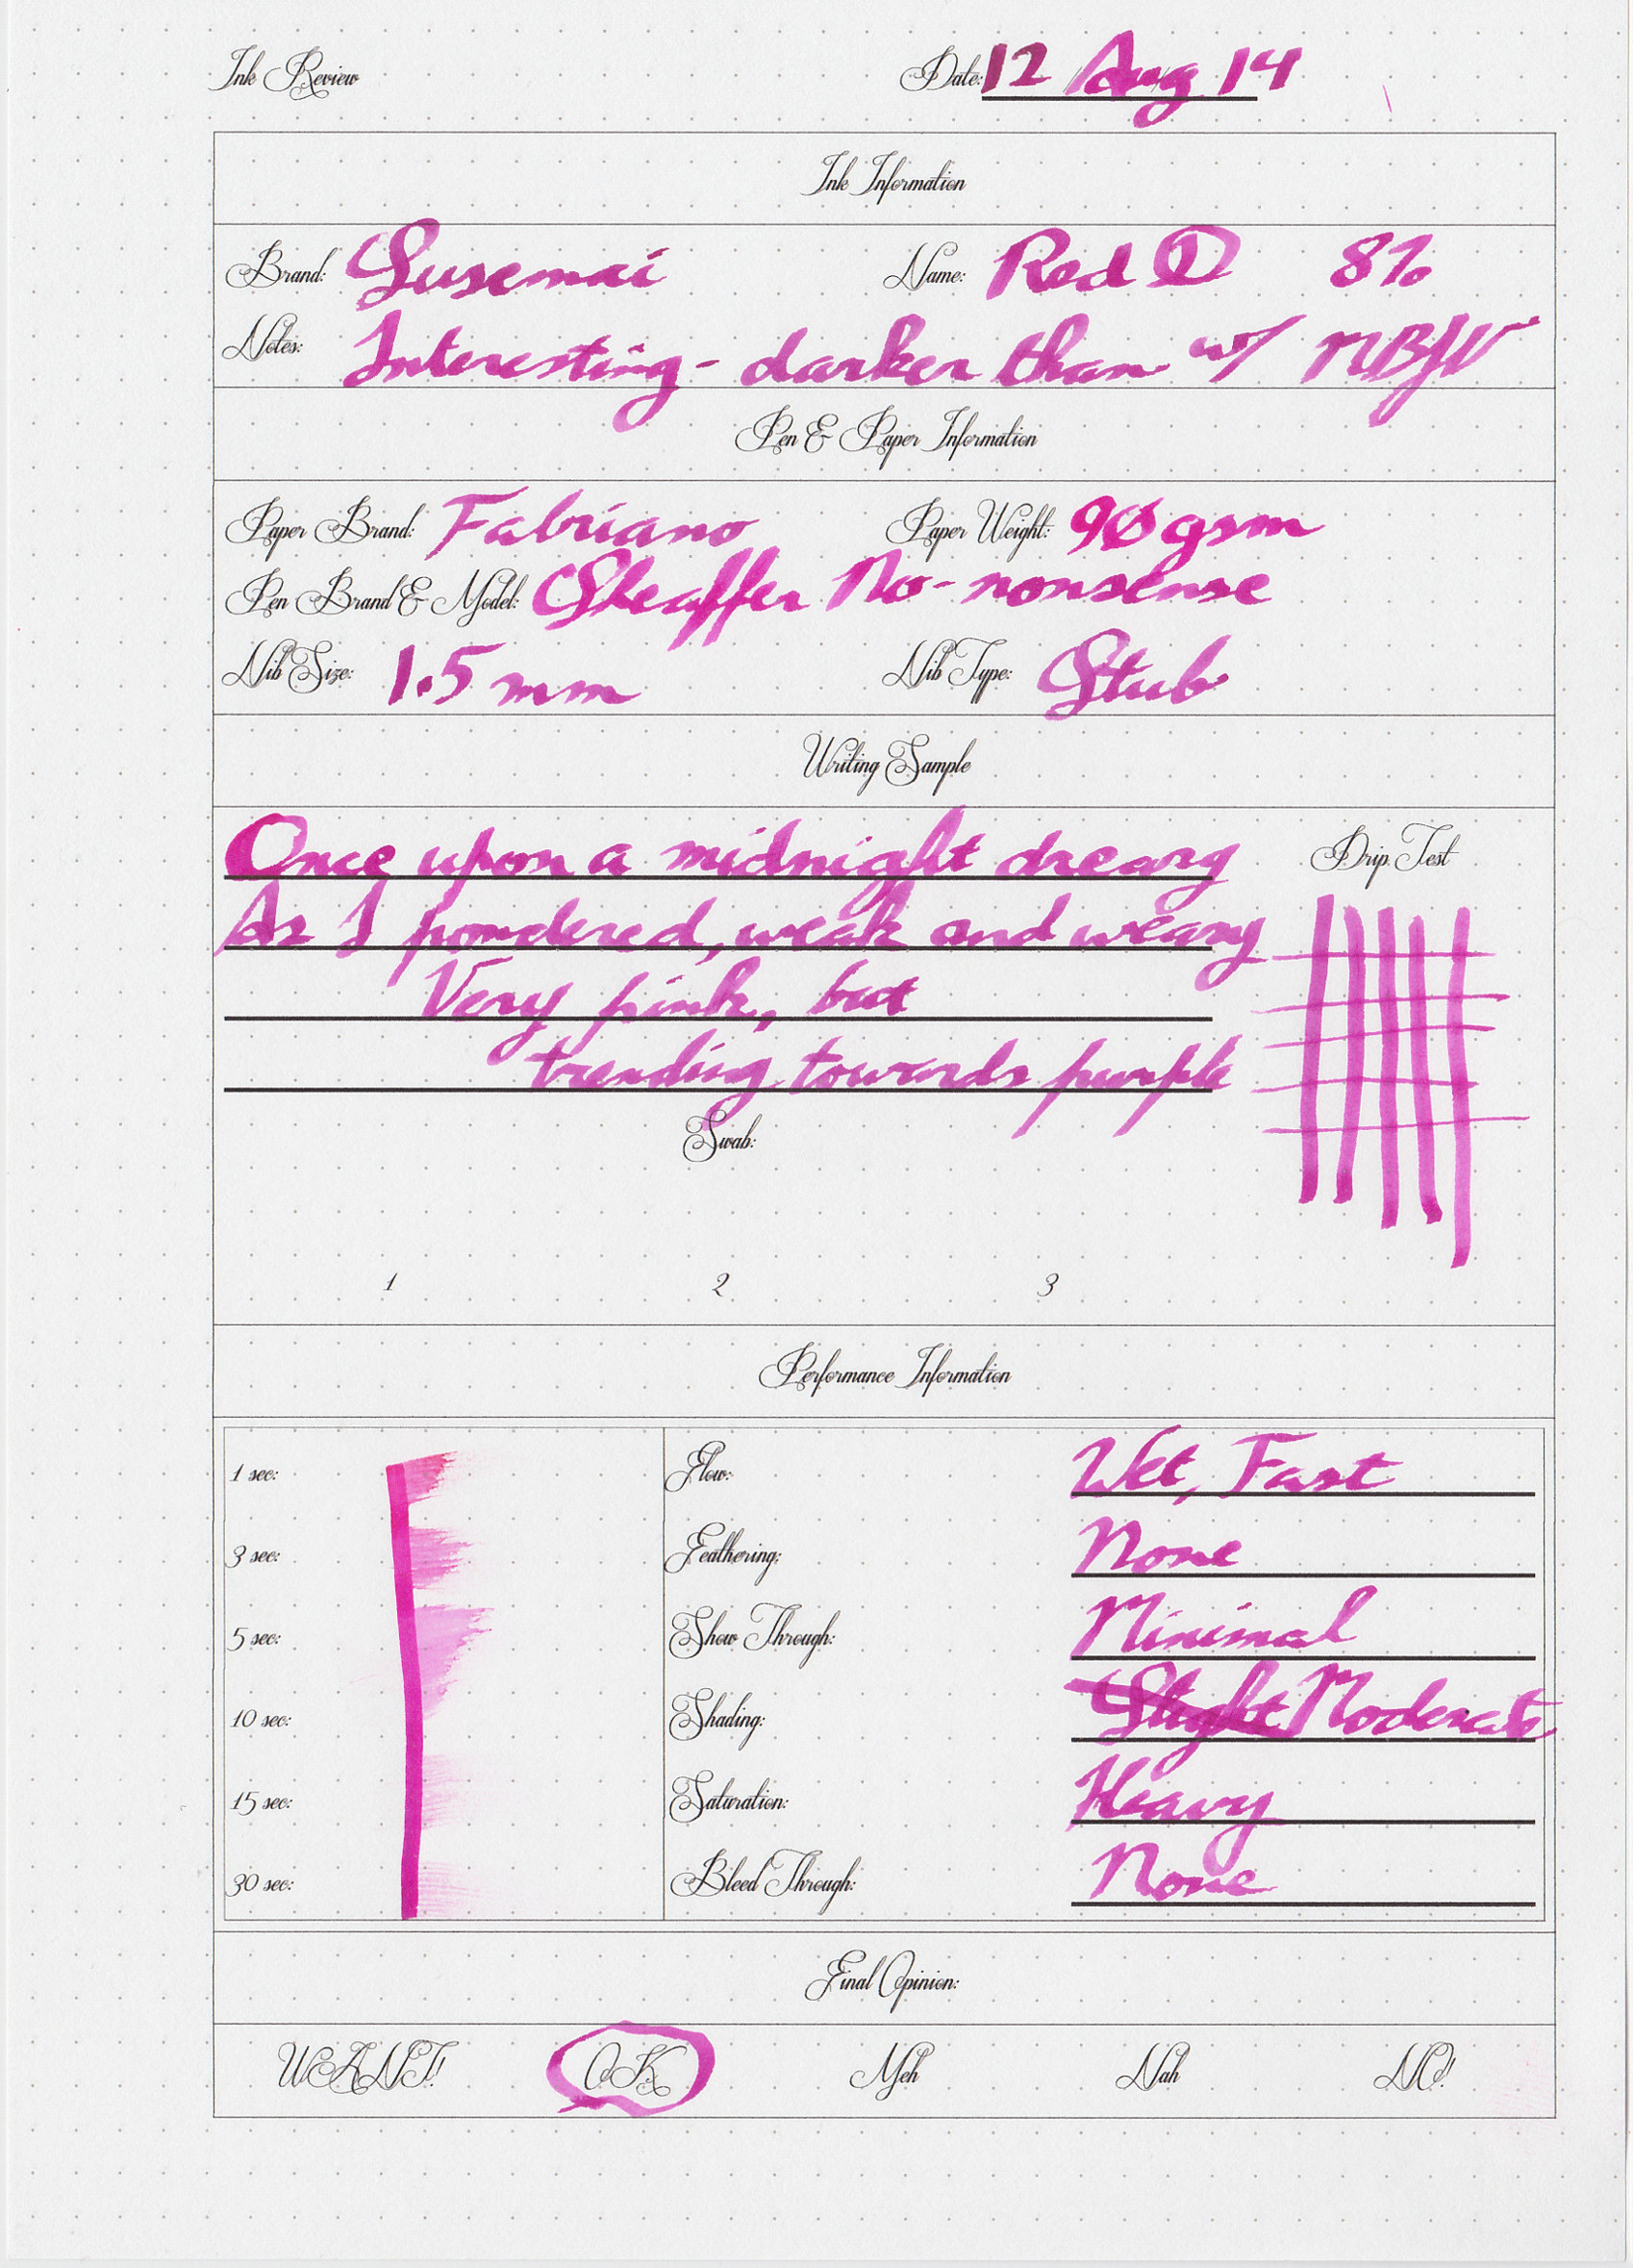 Ink Review Date: 12 Aug 14
Ink Information
Brand: Susemai Name: Red ① 8%
Notes: Interesting - darker than w/ MBJV
Pen & Paper Information
Paper Brand: Fabriano Paper Weight: 90 gsm
Pen Brand & Model: Sheaffer No-nonsense
Nib Size: 1.5 mm Nib Type: Stub
Writing Sample
Once upon a midnight dreary Drip Test
As I pondered, weak and weary
Very pink, but
trending towards purple
Swab:
1 2 3
Performance Information
1 sec: Flow: Wet, Fast
3 sec: Feathering: None
5 sec: Show Through: Minimal
10 sec: Shading: Slight Moderate
15 sec: Saturation: Heavy
30 sec: Bleed Through: None
Final Opinion:
WANT! OK Meh Nah NO!